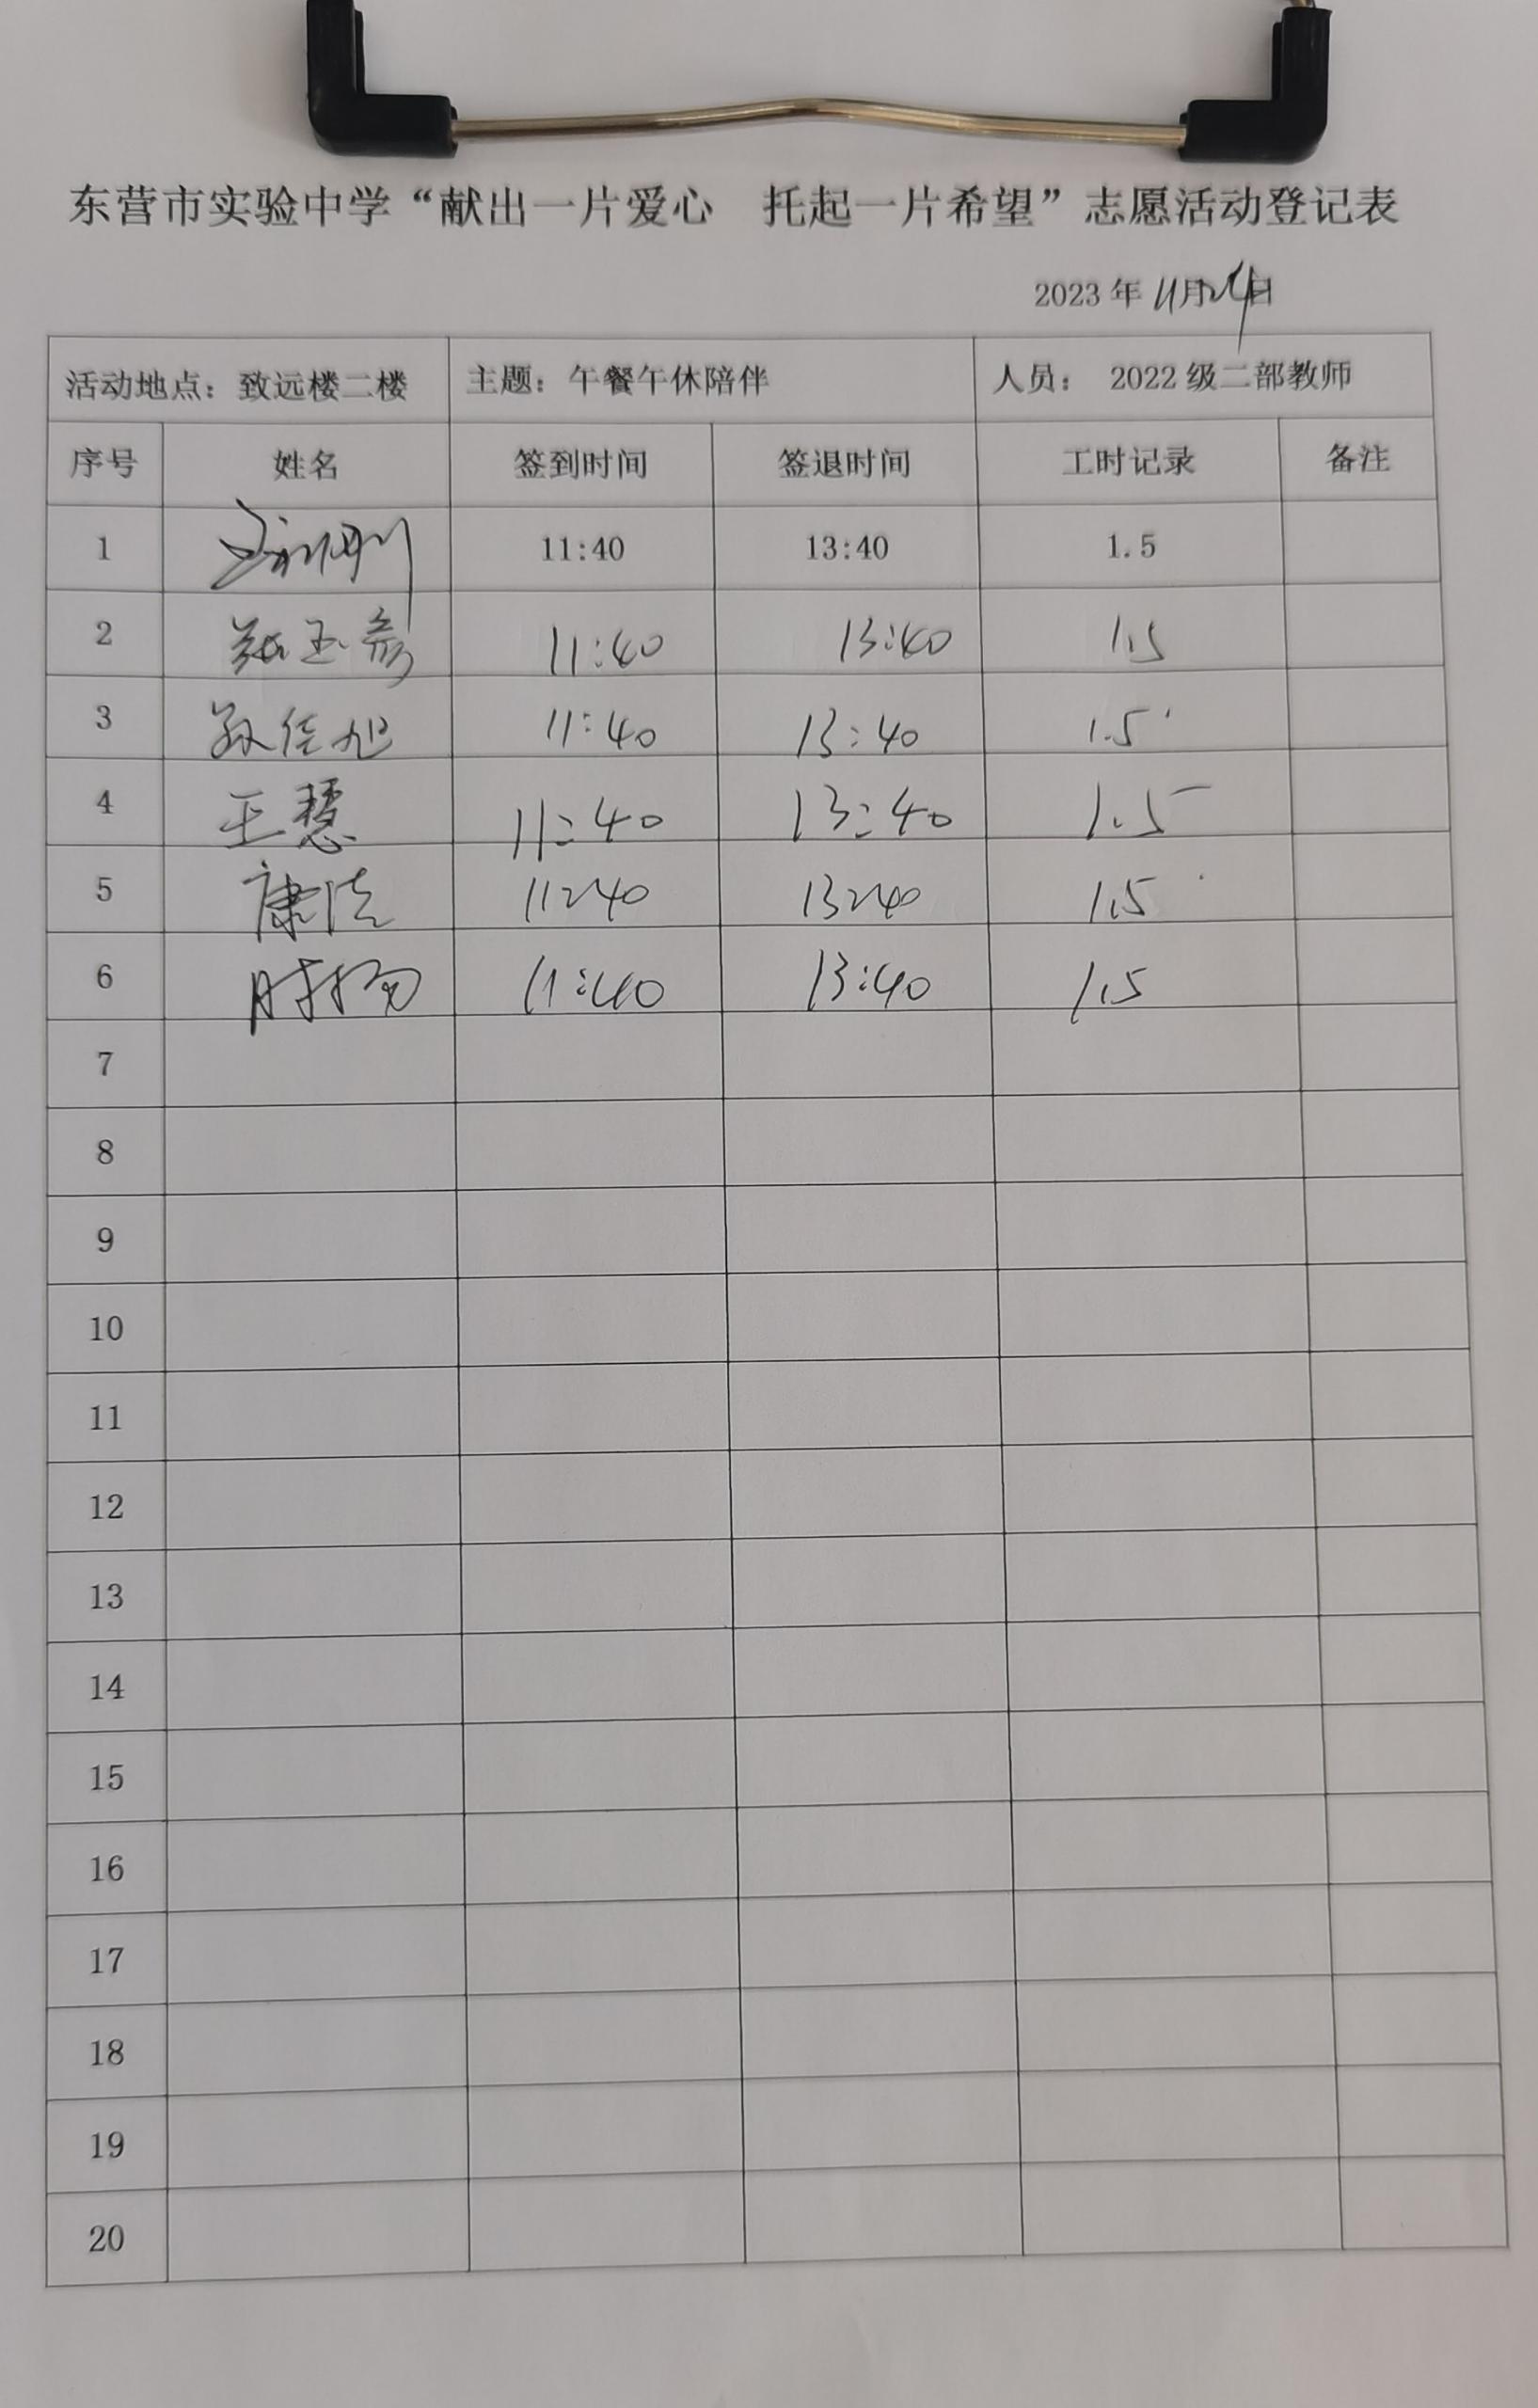 东营市实验中学“献出一片爱心 托起一片希望”志愿活动登记表
2023年11月24日
活动地点：致远楼二楼 主题：午餐午休陪伴 人员： 2022级二部教师
序号 姓名 签到时间 签退时间 工时记录 备注
1 11:40 13:40 1.5
2 11:40 13:40 1.5
3 孙佳旭 11:40 13:40 1.5
4 王慧 11:40 13:40 1.5
5 康洁 11:40 13:40 1.5
6 时扬 11:40 13:40 1.5
7
8
9
10
11
12
13
14
15
16
17
18
19
20